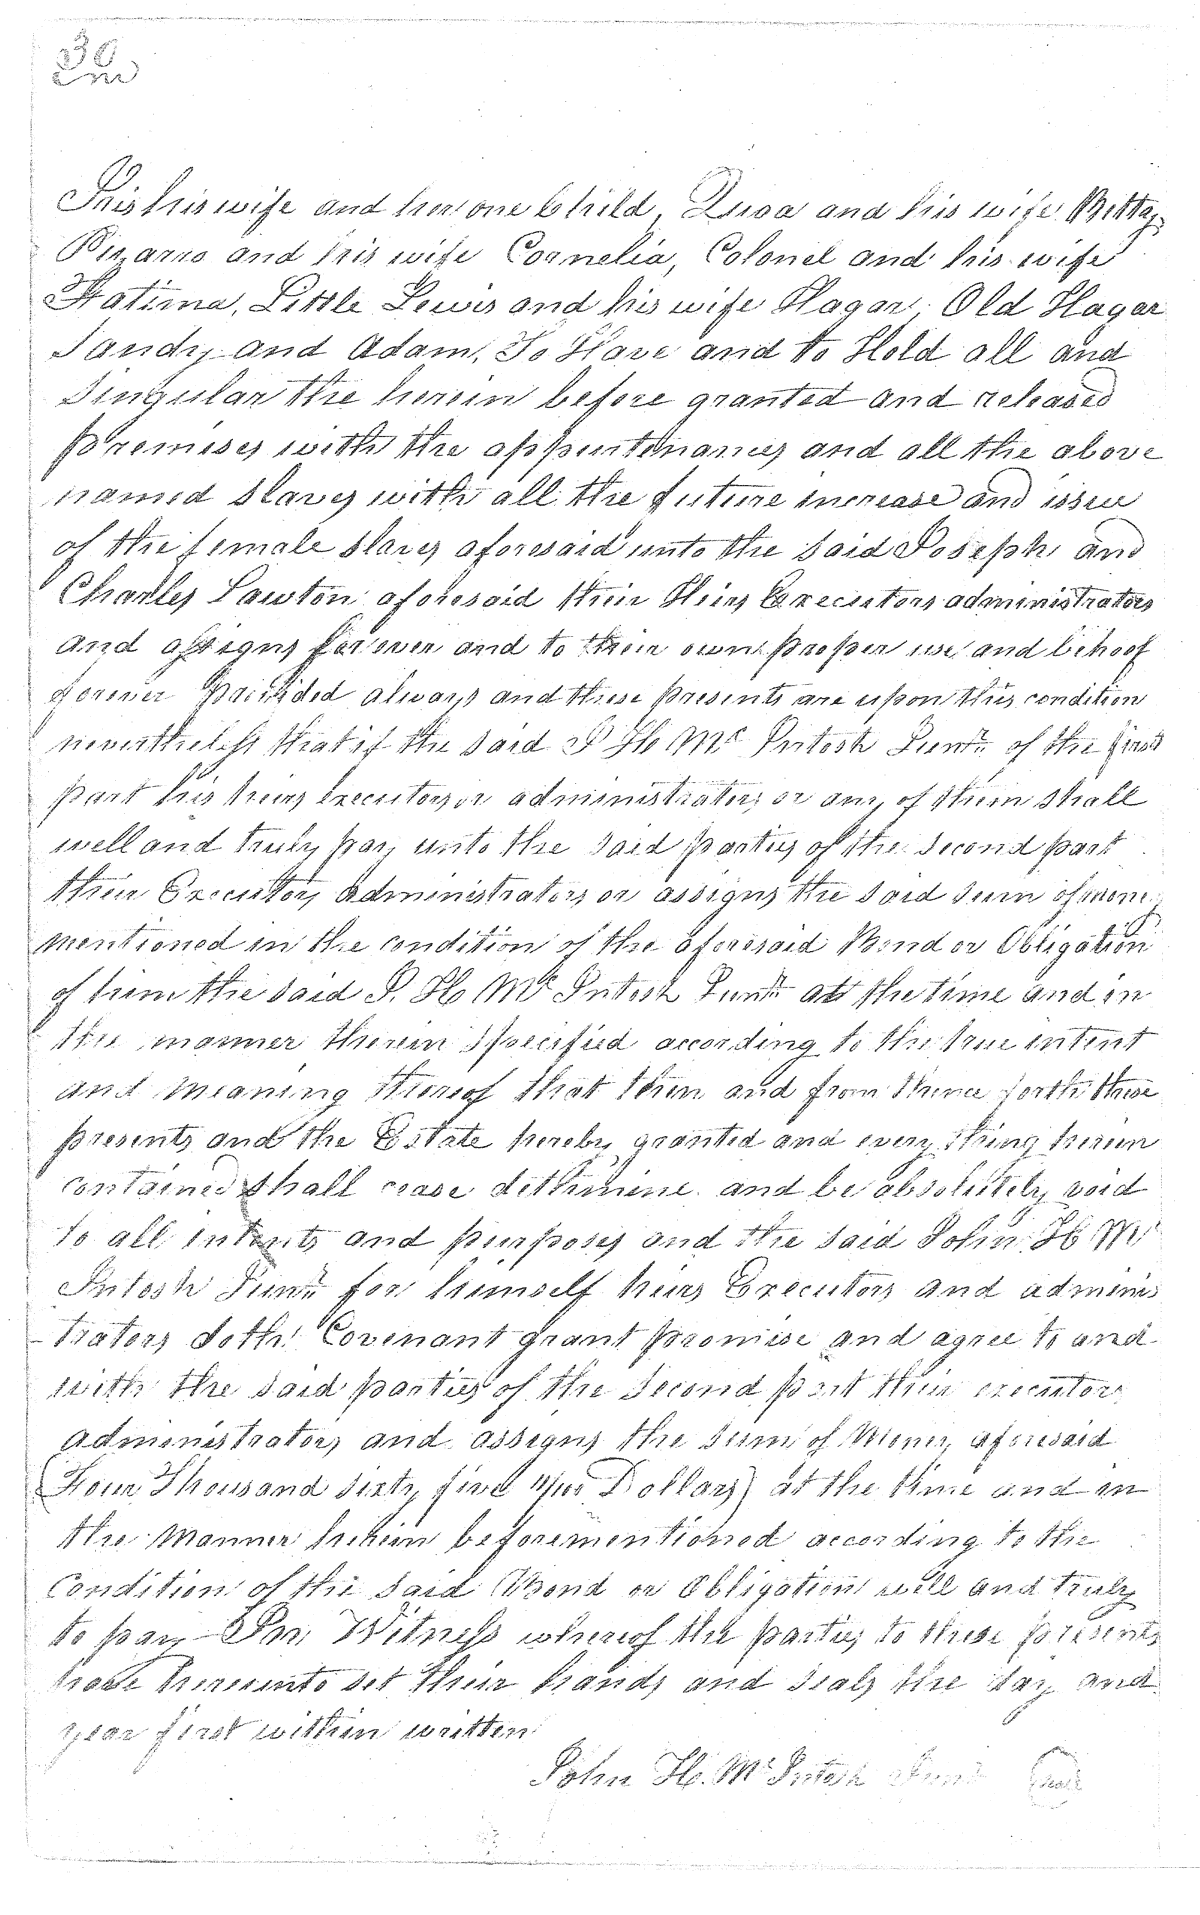 30
his wife and her one Child, Quoa and his wife Betty,
Pizarro and his wife Cornelia, Colonel and his wife
Fatima, Little Lewis and his wife Hagar, Old Hagar
Sandy and Adam, To Have and to Hold all and
Singular the herein before granted and released
premises with the appurtenances and all the above
named Slaves with all the future increase and issue
of the female slaves aforesaid unto the said Joseph and
Charles Lawton aforesaid their Heirs Executors administrators
and assigns forever and to their own proper use and behoof
forever Provided always and these presents are upon this condition
nevertheless that if the said J H Mc Intosh Junr of the first
part his heirs executors or administrators or any of them shall
well and truly pay unto the said parties of the second part
their Executors Administrators or assigns the said sum of money
mentioned in the condition of the aforesaid Bond or Obligation
of him the said J. H Mc Intosh Junr at the time and in
the manner therein specified according to the true intent
and meaning thereof that then and from thence forth these
presents and the Estate hereby granted and every thing herein
contained shall cease determine and be absolutely void
to all intents and purposes and the said John H Mc
Intosh Junr for himself heirs Executors and adminis
-trators doth Covenant grant promise and agree to and
with the said parties of the second part their executors
administrators and assigns the sum of Money aforesaid
(Four Thousand sixty five 11/100 Dollars) at the time and in
the Manner herein beforementioned according to the
Condition of the said Bond or Obligation well and truly
to pay – In Witness whereof the parties to these presents
have hereunto set their hands and seals the day and
year first within written
John H. Mc Intosh Junr (Seal)